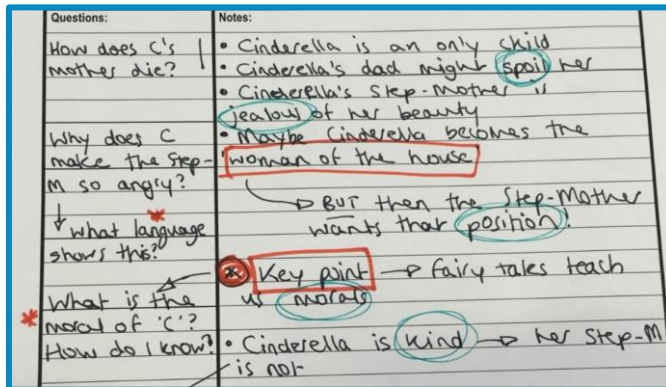 Questions:
How does C's
mother die?
Why does C
make the Step-
M so angry?
What language
shows this?
What is the
moral of 'C'?
How do I know?
Notes:
• Cinderella is an only child
• Cinderella's dad might spoil her
• Cinderella's Step-Mother is
jealous of her beauty
• Maybe Cinderella becomes the
'woman of the house
BUT then the Step-Mother
wants that position!
Key point → Fairy tales teach
us morals
• Cinderella is kind → her Step-M
is not